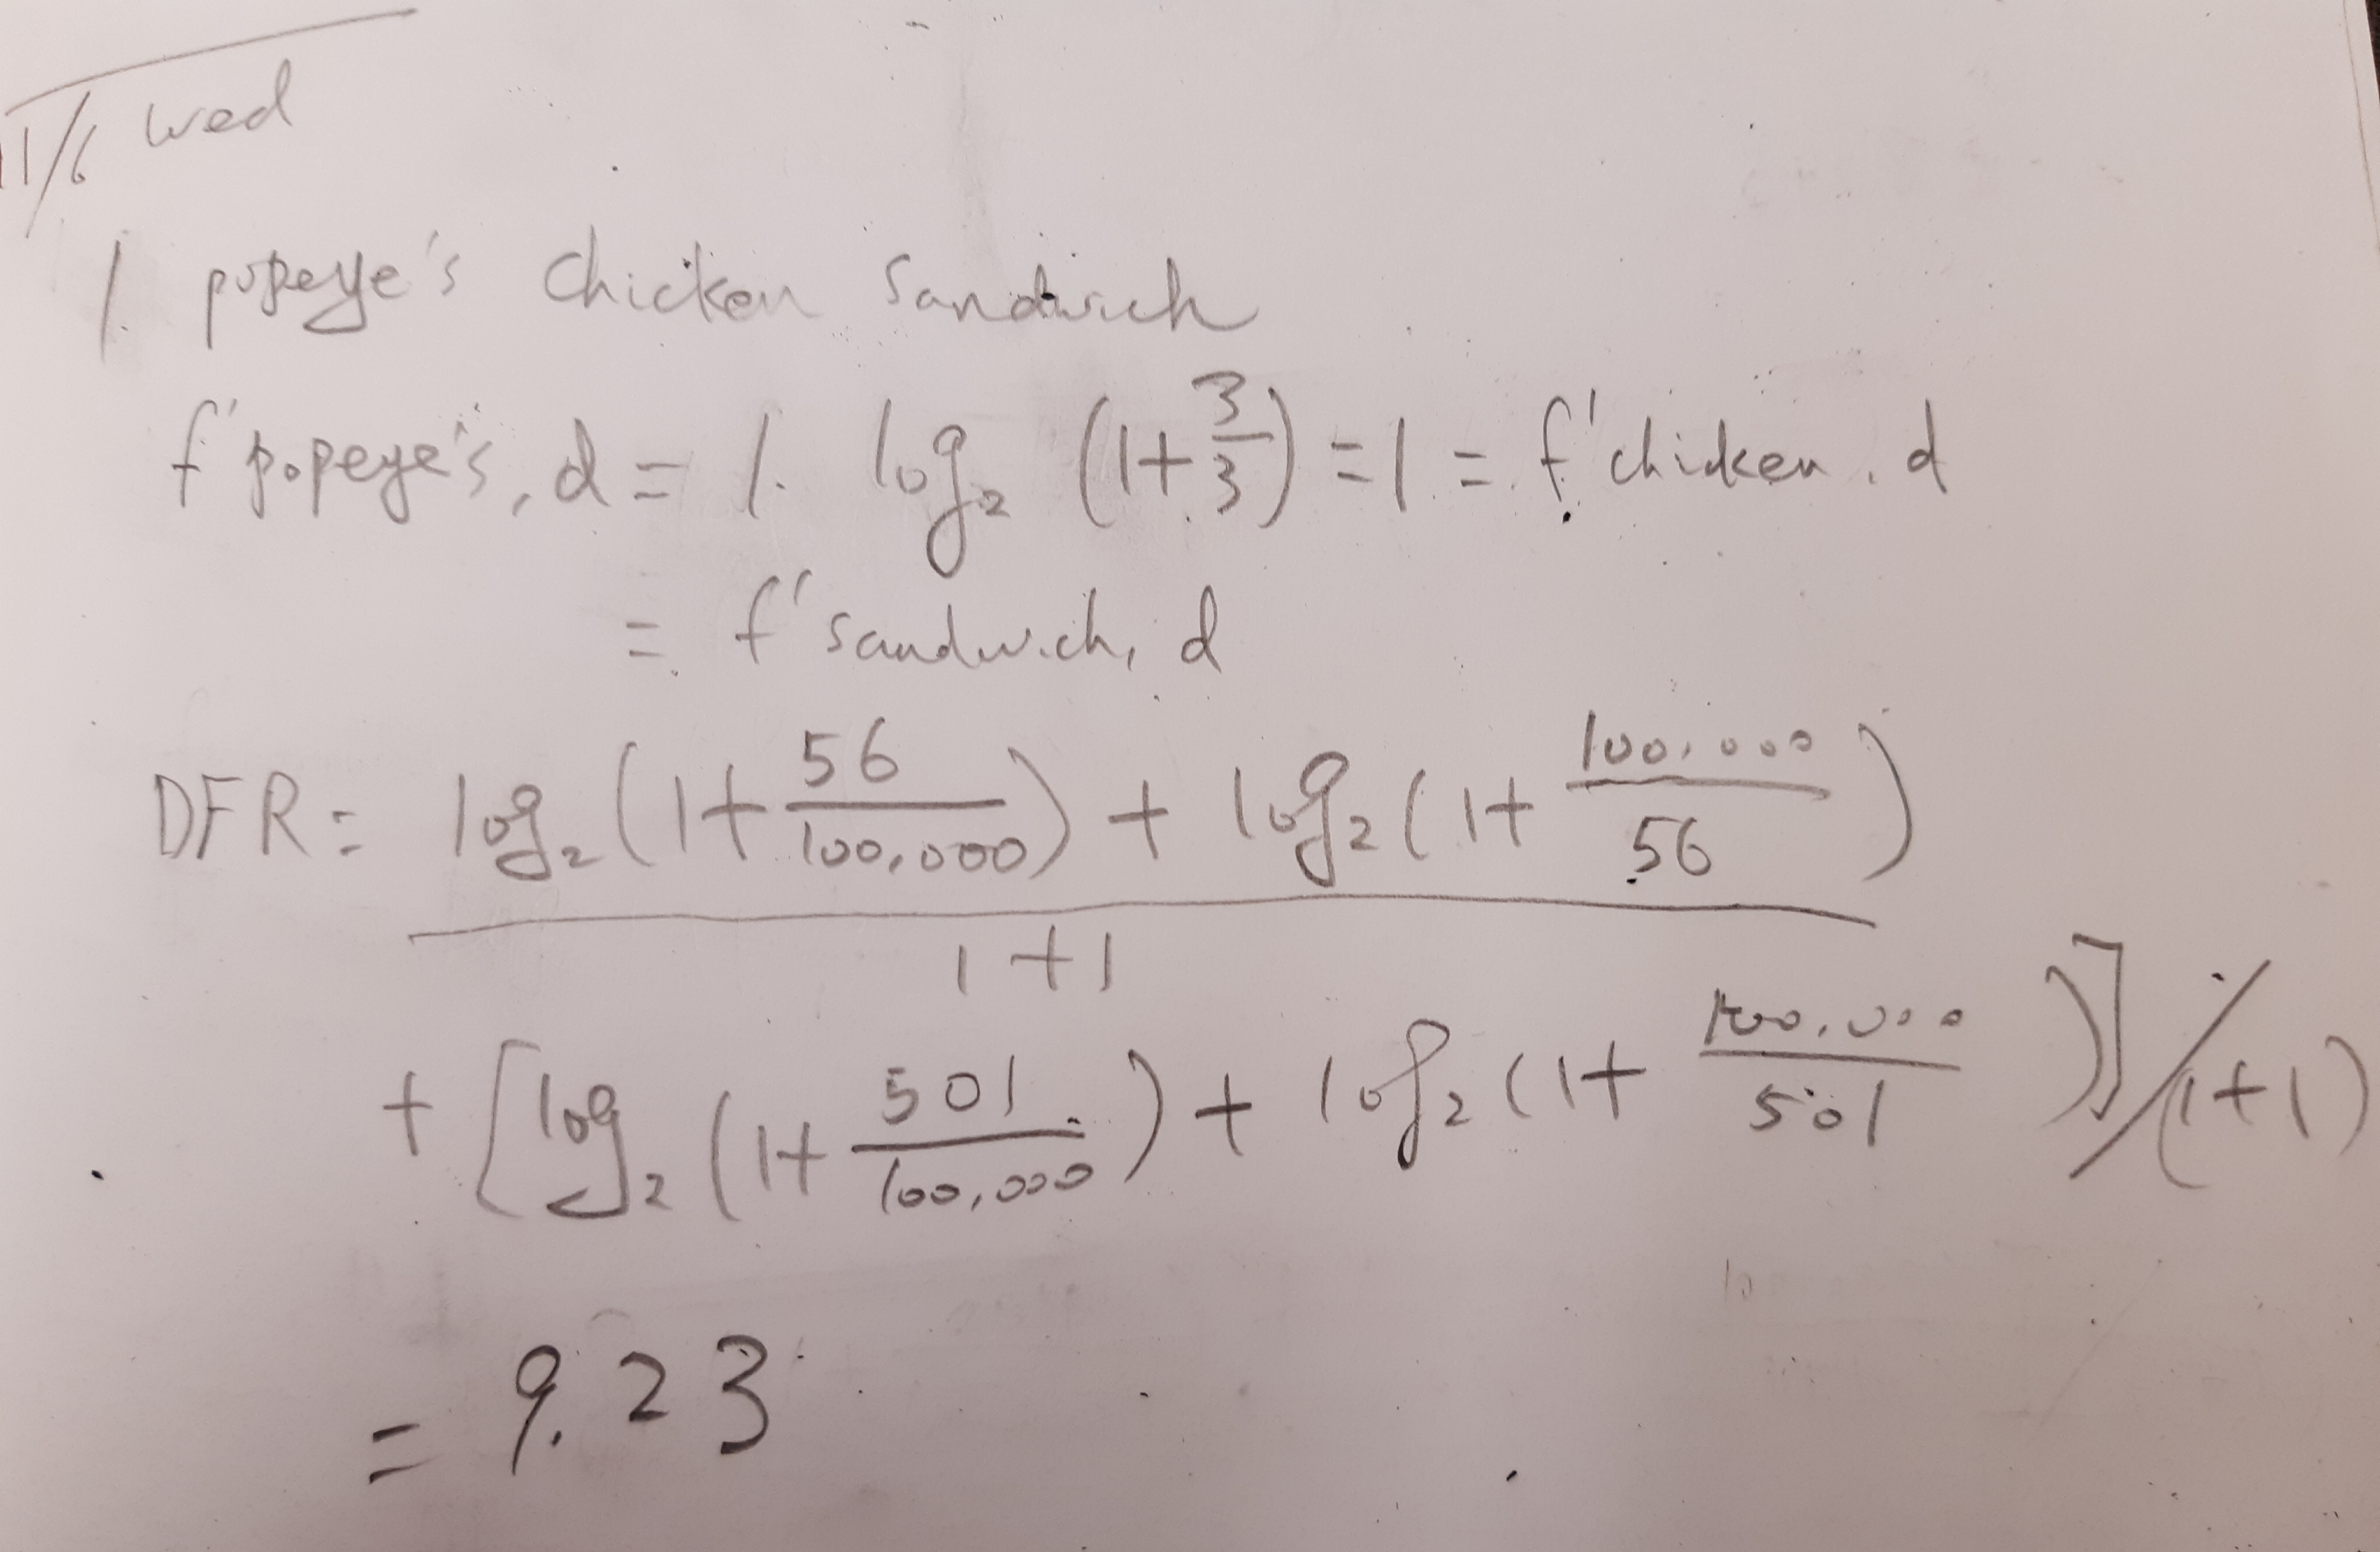 11/6 wed
1. popeye's chicken sandwich
f'popeye's, d = 1. log₂ (1+3/3) = 1 = f'chicken, d
= f'sandwich, d
DFR = log₂(1+56/100,000) + log₂(1+100,000/56)
1+1
+ [log₂(1+501/100,000) + log₂(1+100,000/501)]/(1+1)
= 9.23